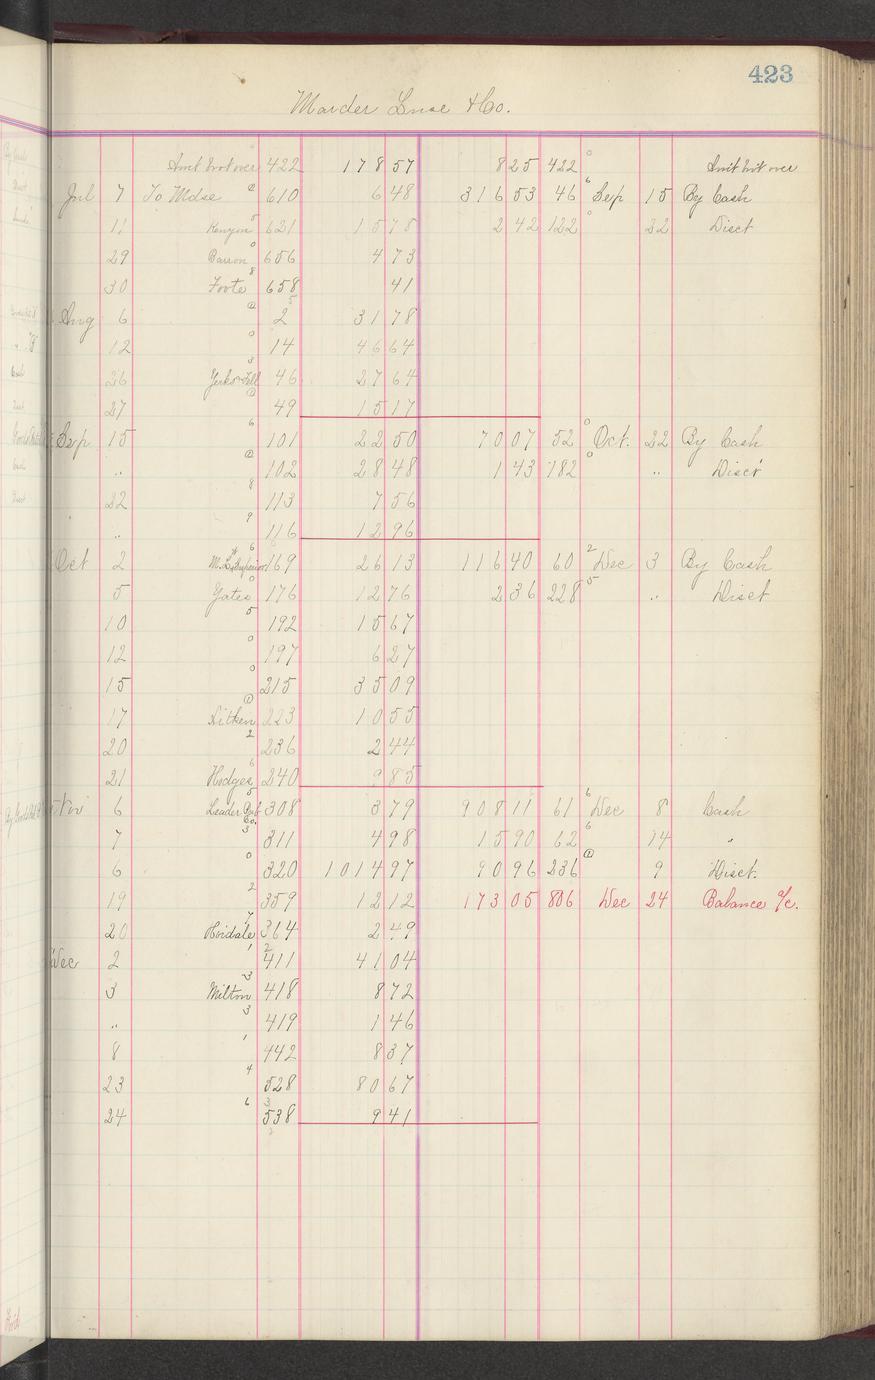 423
Marder Luse & Co.
Amt brot over 422 178 57 8 25 422 0 Amt brot over
Jul 7 To Mdse 610 6 48 316 53 46 6 Sep 15 By Cash
11 Kenyon 5 621 15 78 2 42 122 0 22 Disct
29 Barron 0 656 4 73
30 Foote 8 658 41
Aug 6 2 31 78
12 0 14 46 64
26 Yerkes & Fell 3 46 27 64
27 49 15 17
Sep 15 6 101 22 50 70 07 52 0 Oct. 22 By Cash
" 102 28 48 1 43 182 0 " Disct
22 8 113 7 56
" 9 116 12 96
Oct 2 6 169 26 13 116 40 60 2 Dec 3 By Cash
5 Yates 0 176 12 76 2 36 228 5 " Disct
10 5 192 15 67
12 0 197 6 27
15 0 215 35 09
17 Aitken 223 10 55
20 2 236 2 44
21 Hodges 6 240 9 85
Nov 6 Leader Pub Co. 5 308 3 79 908 11 61 6 Dec 8 Cash
7 3 311 4 98 15 90 62 6 14 "
6 0 320 1014 97 90 96 236 9 Disct.
19 2 359 12 12 173 05 806 Dec 24 Balance a/c.
20 7 364 2 49
Dec 2 1 411 41 04
3 Milton 3 418 8 72
" 3 419 1 46
8 1 442 8 37
23 4 528 80 67
24 6 538 9 41